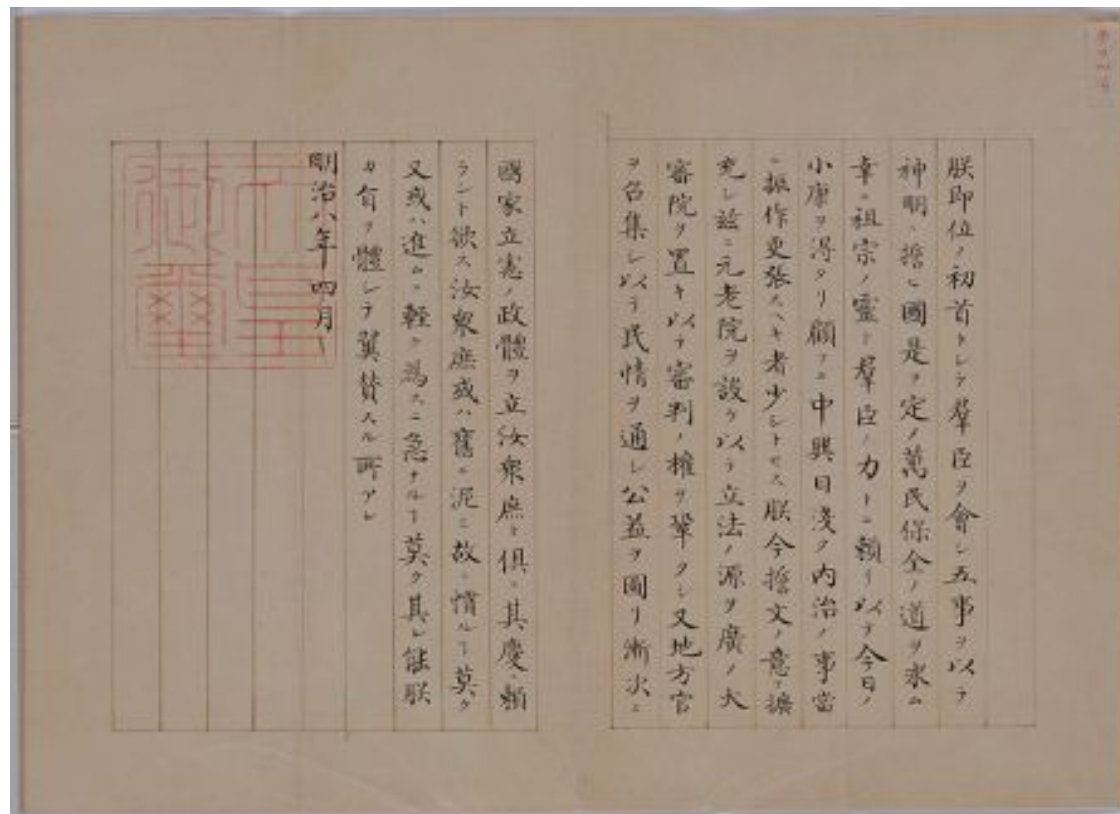 朕即位ノ初首トシテ羣臣ヲ會シ五事ヲ以テ
神明ニ誓ヒ國是ヲ定メ萬民保全ノ道ヲ求ム
幸ニ祖宗ノ靈ト羣臣ノ力トニ頼リ以テ今日ノ
小康ヲ得タリ顧フニ中興日淺ク内治ノ事當
ニ振作更張スヘキ者少シトセス朕今誓文ノ意ヲ擴
充シ茲ニ元老院ヲ設ケ以テ立法ノ源ヲ廣メ大
審院ヲ置キ以テ審判ノ權ヲ鞏クシ又地方官
ヲ召集シ以テ民情ヲ通シ公益ヲ圖リ漸次ニ
國家立憲ノ政體ヲ立汝衆庶ト倶ニ其慶ニ頼
ラント欲ス汝衆庶或ハ舊ニ泥ミ故ニ慣ルヿ莫ク
又或ハ進ムニ輕ク為スニ急ナルヿ莫ク其レ能朕
カ旨ヲ體シテ翼賛スル所アレ
明治八年四月
天皇
御璽